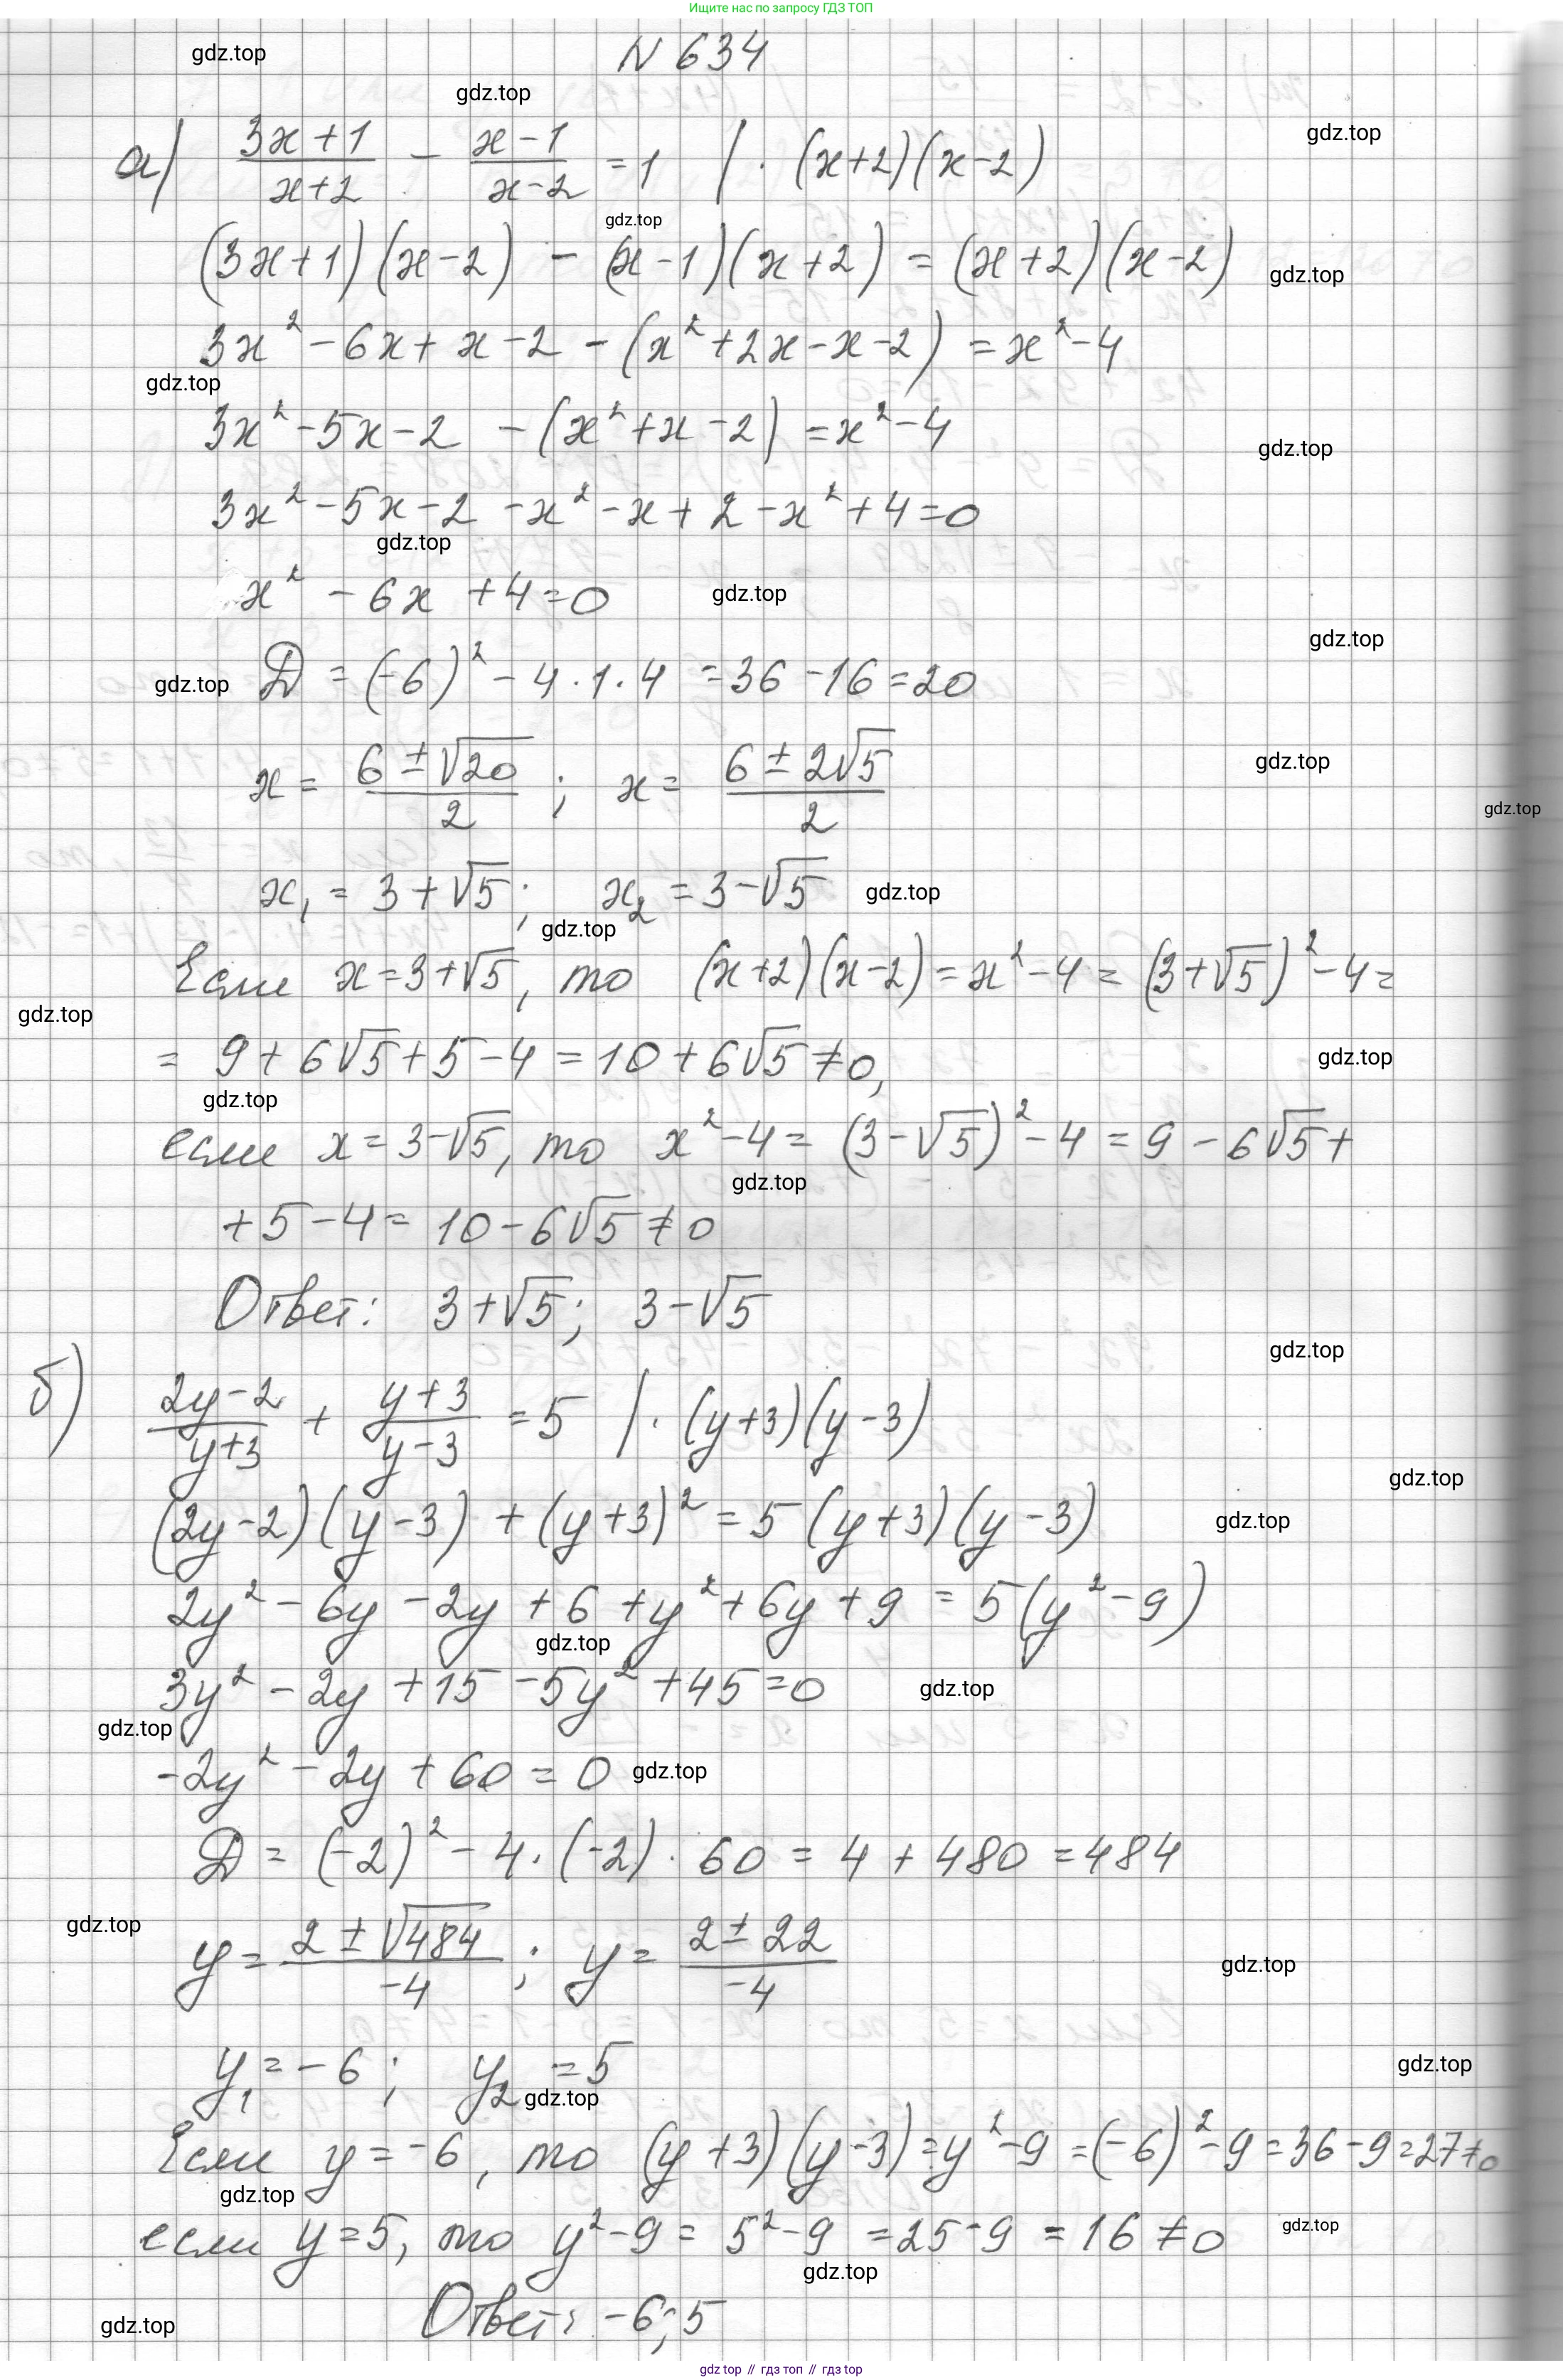 Ищите нас по запросу ГДЗ ТОП
N 634
gdz.top
gdz.top
gdz.top
а) (3x+1)/(x+2) - (x-1)/(x-2) = 1 | · (x+2)(x-2)
gdz.top
(3x+1)(x-2) - (x-1)(x+2) = (x+2)(x-2)
gdz.top
3x² - 6x + x - 2 - (x² + 2x - x - 2) = x² - 4
gdz.top
3x² - 5x - 2 - (x² + x - 2) = x² - 4
gdz.top
3x² - 5x - 2 - x² - x + 2 - x² + 4 = 0
gdz.top
x² - 6x + 4 = 0
gdz.top
gdz.top
gdz.top
D = (-6)² - 4 · 1 · 4 = 36 - 16 = 20
x = (6 ± √20)/2 ; x = (6 ± 2√5)/2
gdz.top
gdz.top
x₁ = 3 + √5 ; x₂ = 3 - √5
gdz.top
gdz.top
Если x = 3 + √5, то (x+2)(x-2) = x² - 4 = (3 + √5)² - 4 =
gdz.top
= 9 + 6√5 + 5 - 4 = 10 + 6√5 ≠ 0,
gdz.top
gdz.top
если x = 3 - √5, то x² - 4 = (3 - √5)² - 4 = 9 - 6√5 +
gdz.top
+ 5 - 4 = 10 - 6√5 ≠ 0
Ответ: 3 + √5 ; 3 - √5
gdz.top
б) (2y-2)/(y+3) + (y+3)/(y-3) = 5 | · (y+3)(y-3)
gdz.top
(2y-2)(y-3) + (y+3)² = 5(y+3)(y-3)
gdz.top
2y² - 6y - 2y + 6 + y² + 6y + 9 = 5(y² - 9)
gdz.top
3y² - 2y + 15 - 5y² + 45 = 0
gdz.top
gdz.top
-2y² - 2y + 60 = 0
gdz.top
D = (-2)² - 4 · (-2) · 60 = 4 + 480 = 484
gdz.top
y = (2 ± √484)/-4 ; y = (2 ± 22)/-4
gdz.top
y₁ = -6 ; y₂ = 5
gdz.top
gdz.top
Если y = -6, то (y+3)(y-3) = y² - 9 = (-6)² - 9 = 36 - 9 = 27 ≠ 0
gdz.top
если y = 5, то y² - 9 = 5² - 9 = 25 - 9 = 16 ≠ 0
gdz.top
gdz.top
Ответ: -6; 5
gdz.top
gdz top // гдз топ // гдз top